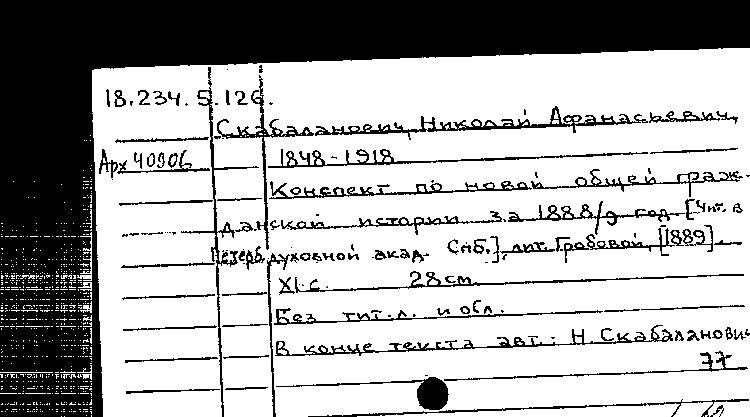 18.234.5.126.
Скабаланович, Николай Афанасьевич,
Арх 40906 1848-1918
Конспект по новой общей граж-
данской истории за 1888/9 год. [Чит. в
Петерб. духовной акад. Спб.], лит. Гробовой, [1889].
XI с. 28 см.
Без тит. л. и обл.
В конце текста авт.: Н. Скабаланович
77